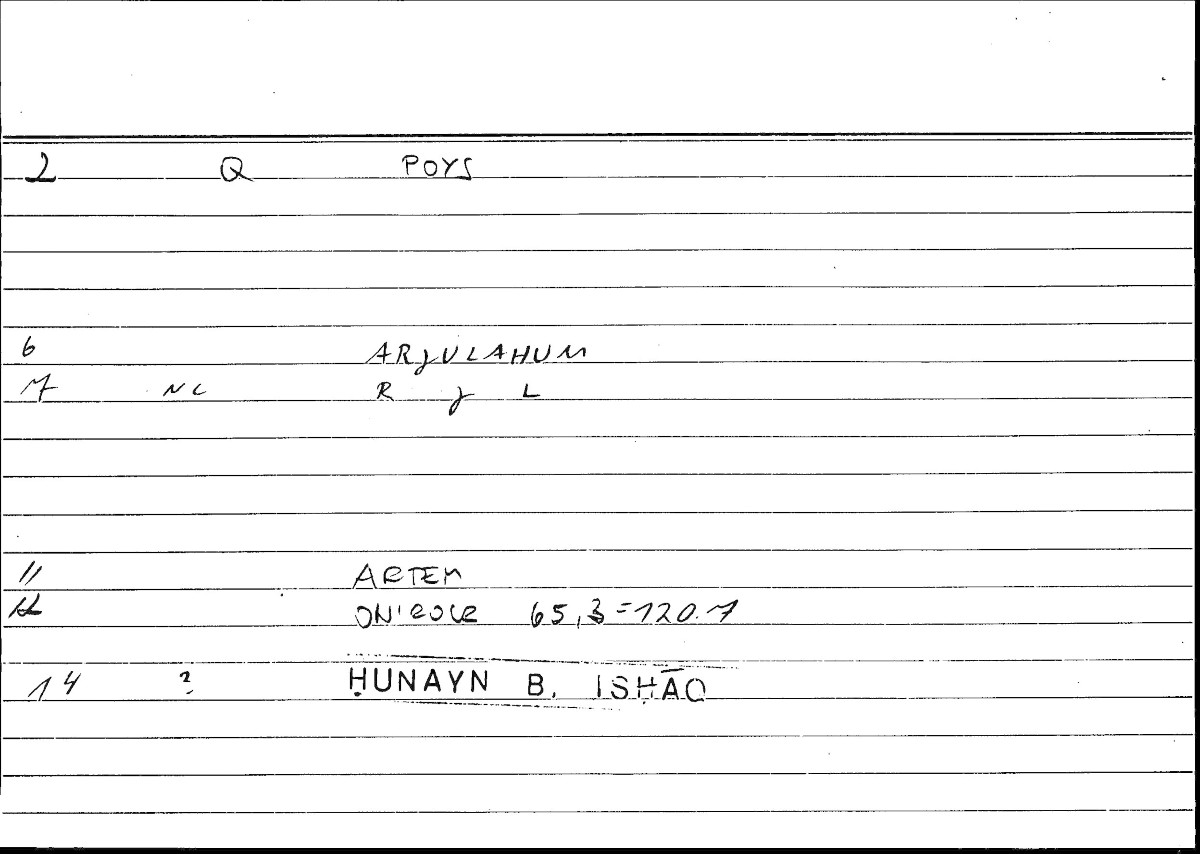 2 Q POYS
6 ARJULAHUM
7 NC R J L
11 ARTEM
12 ON'EOLE 65,3=120.7
14 ? ḤUNAYN B. ISḤĀQ